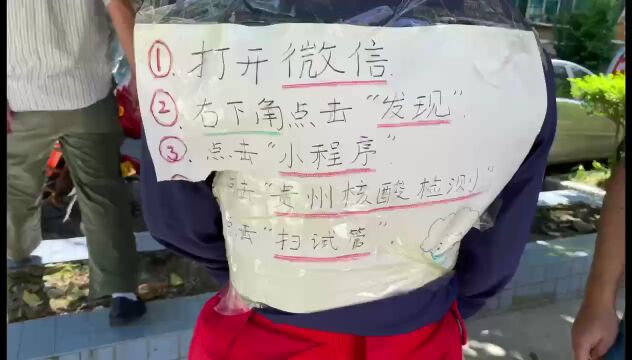 ①. 打开微信.
②. 右下角点击“发现”.
③. 点击“小程序”.
点击“贵州核酸检测”
点击“扫试管”.